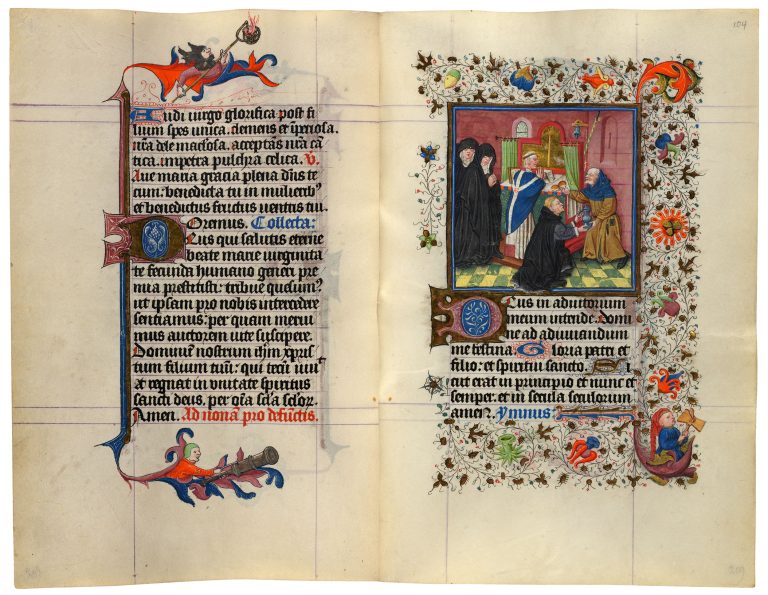 Audi virgo gloriosa post fi
lium spes unica. clemens et imperiosa.
nr̄a dele maculosa. acceptās nr̄a cā
tica. impetra pulchra celica. V.
Aue maria gracia plena dn̄s te
cum: benedicta tu in mulierib⁹
et benedictus fructus ventris tui.
Oremus. Collecta:
Deus qui salutis eterne
beate marie virginita
te fecunda humano generi pre
mia prestitisti: tribue quesum⁹
ut ipsam pro nobis intercedere
sentiamus: per quam merui
mus auctorem vite suscipere.
Dominum nostrum ihm̄ xpris
tum filium tuū: qui tecū
et regnat in unitate spiritus
sancti deus. per
Amen. Ad nonam pro defunctis.
104
Deus in adiutorium
meum intende. Domi
ne ad adiuuandum
me festina Gloria patri et
filio: et spiritui sancto. Si
cut erat in principio et nunc et
semper: et in secula seculorum
amen. Ympnus: